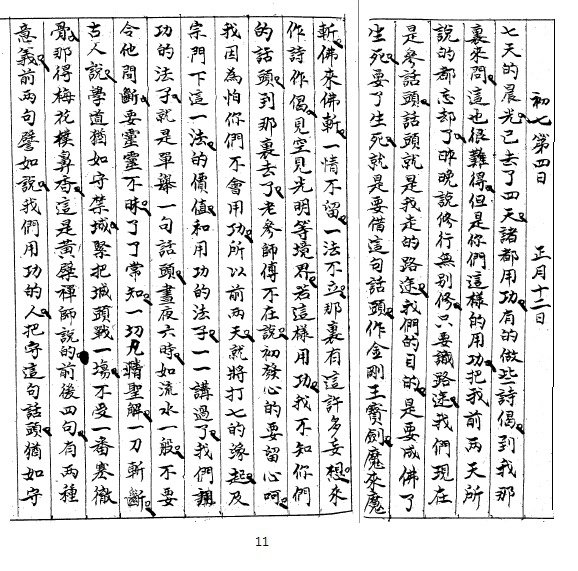 初七第四日　正月十二日
七天的晨光。已去了四天。諸都用功。有的做些詩偈。到我那
裏來問。這也很難得。但是你們這樣的用功。把我前兩天所
說的都忘却了。昨晚說修行無別修。只要識路途。我們現在
是參話頭。話頭就是我走的路途。我們的目的。是要成佛了
生死。要了生死。就是要借這句話頭。作金剛王寶劍。魔來魔
斬。佛來佛斬。一情不留。一法不立。那裏有這許多妄想。來
作詩作偈。見空見光明等境界。若這樣用功。我不知你們
的話頭到那裏去了。老參師傅不在說。初發心的要留心呵。
我因為怕你們不會用功。所以前兩天就將打七的緣起。及
宗門下這一法的價值。和用功的法子。一一講過了。我們
功的法子。就是單舉一句話頭。晝夜六時。如流水一般。不要
令他間斷。要靈靈不昧。了了常知。一切凡情聖解。一刀斬斷。
古人說。學道猶如守禁城。緊把城頭戰一場。不受一番寒徹
骨。那得梅花樸鼻香。這是黃檗禪師說的。前後四句。有兩種
意義。前兩句譬如說。我們用功的人。把守這句話頭。猶如守
11